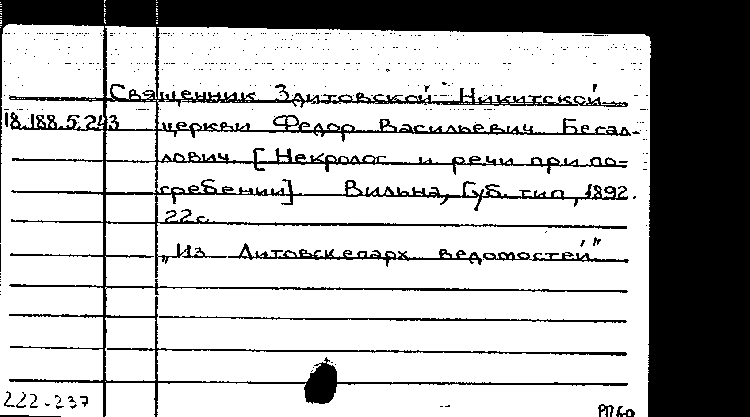 Священник Здитовской Никитской
18.188.5.243 церкви Федор Васильевич Бесал-
лович. [Некролог и речи при по-
гребении]. Вильна, Губ. тип, 1892.
22с.
„Из Литовск.епарх ведомостей"
222-237